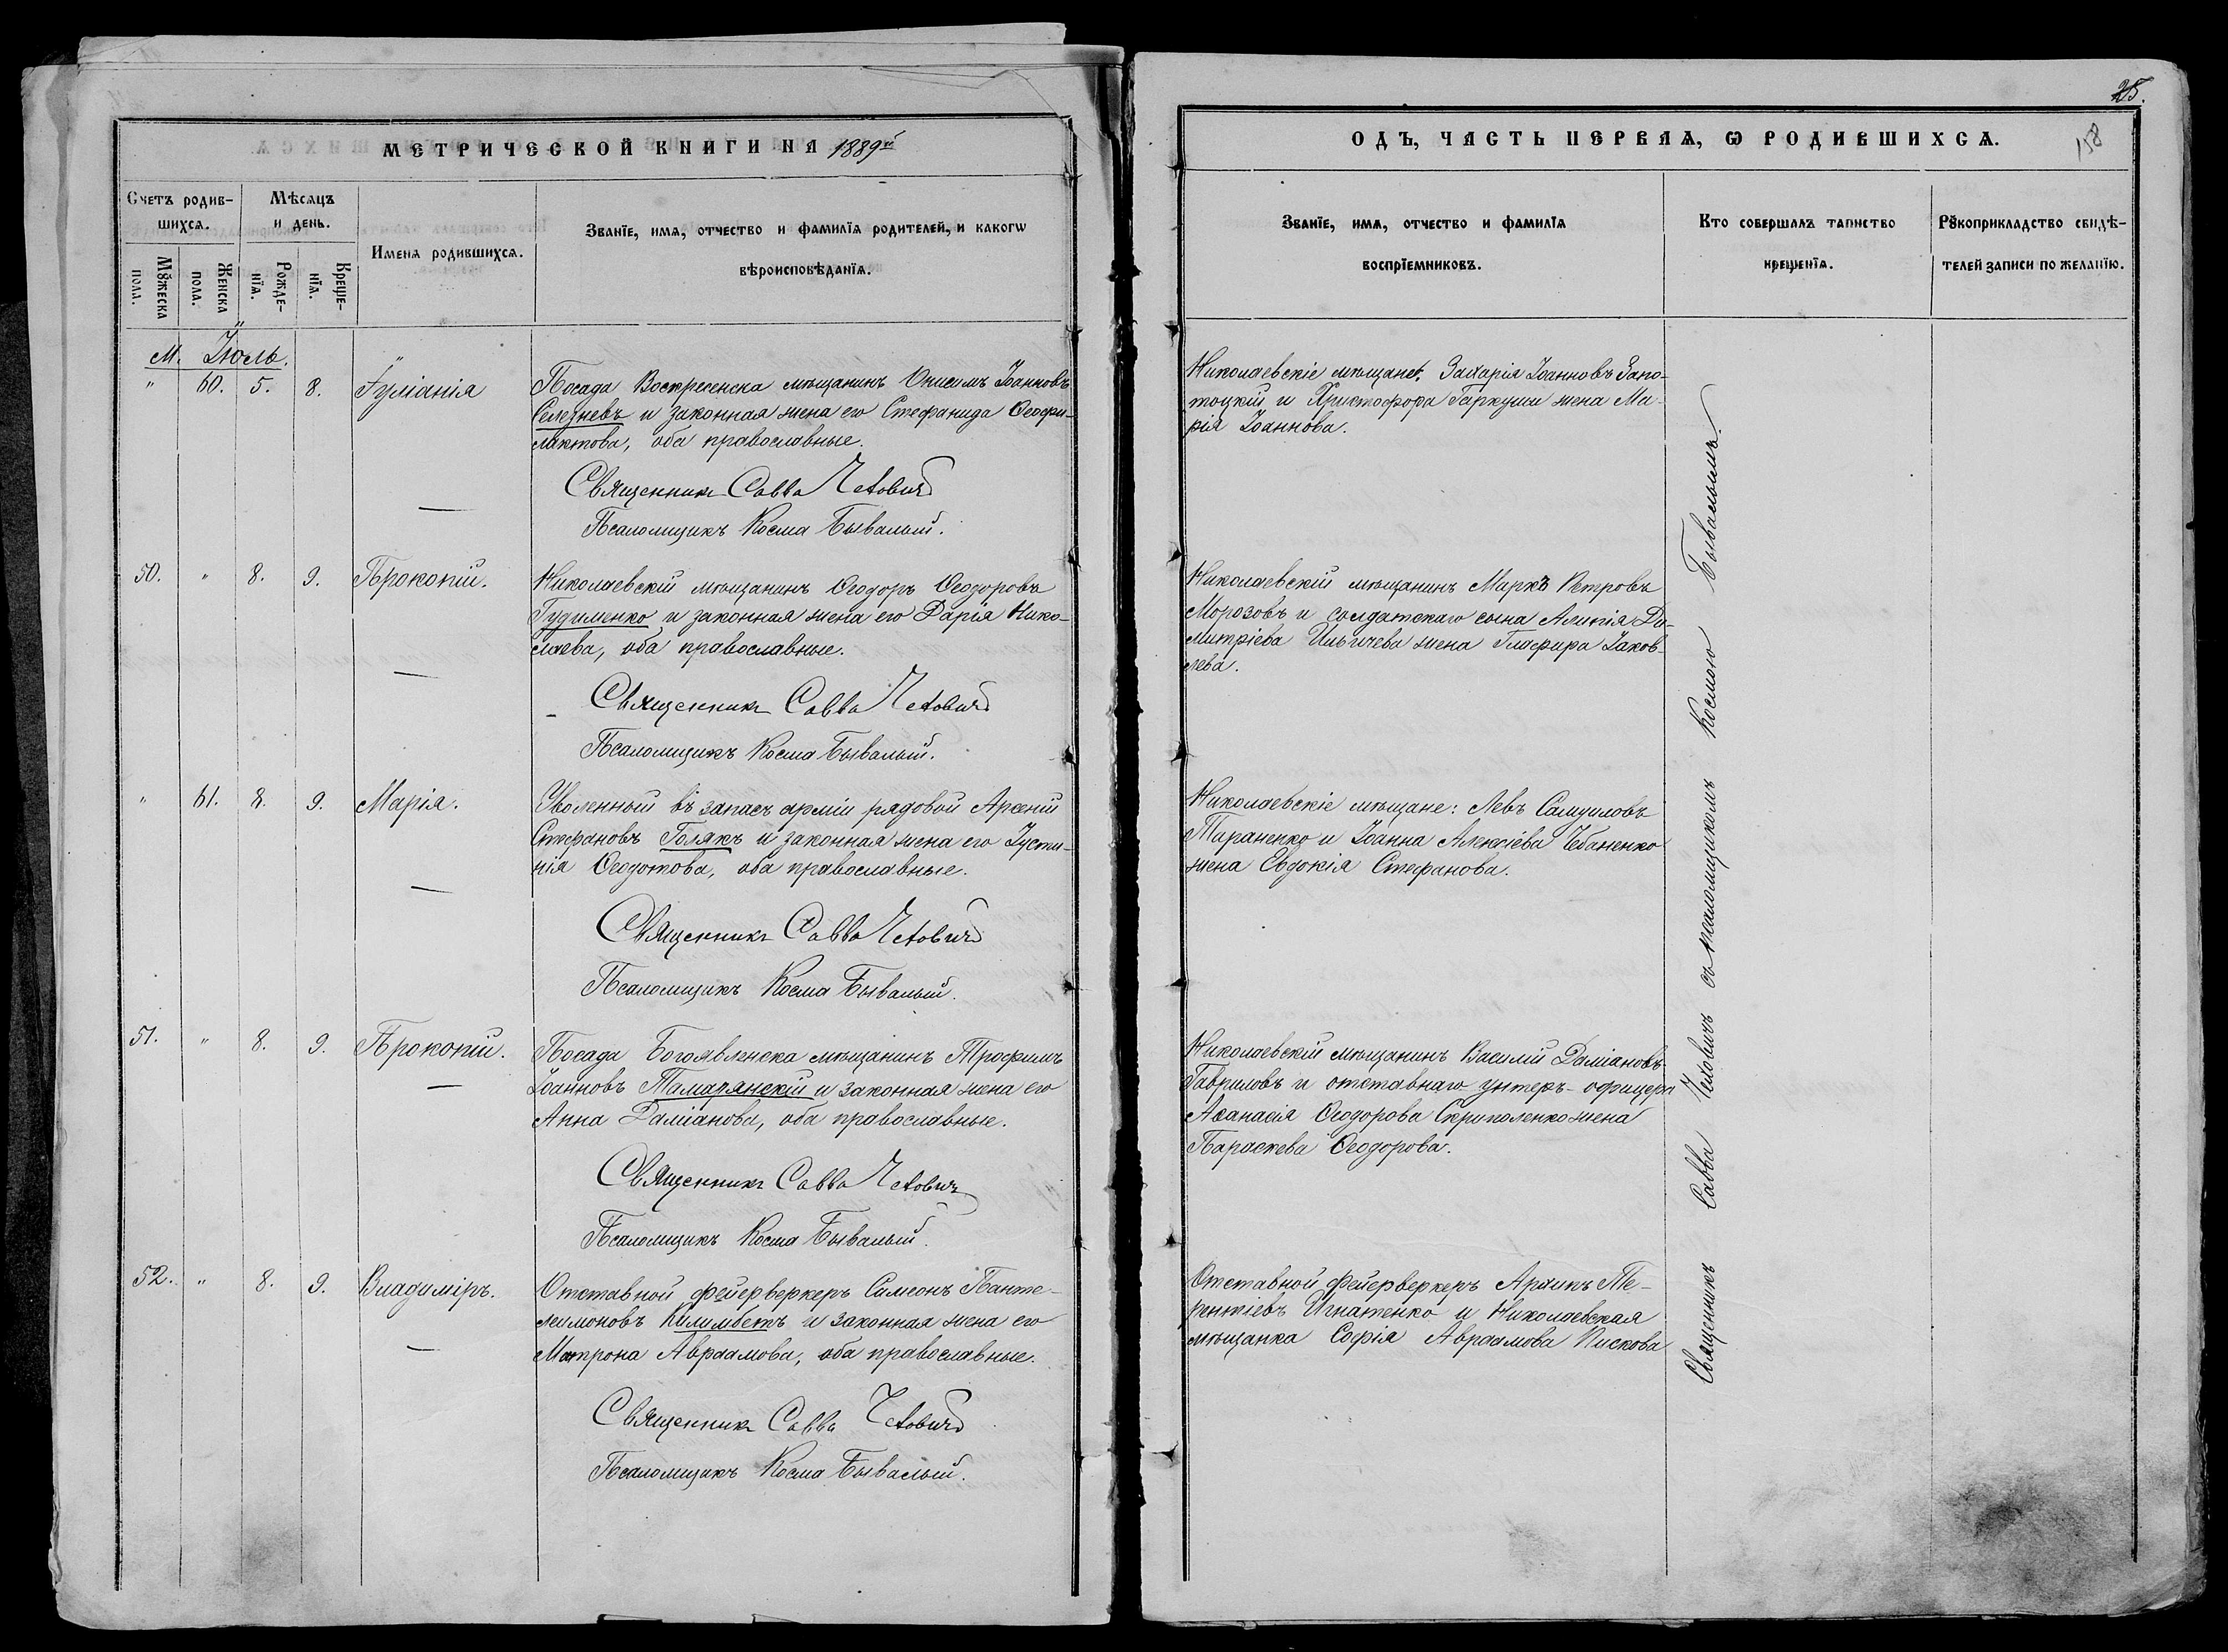 25.
158
МЕТРИЧЕСКОЙ КНИГИ НА 1889й
ОДЪ, ЧАСТЬ ПЕРВАЯ, Ѡ РОДИВШИХСѦ.
Счетъ родив-
шихсѧ.
Мꙋжеска
пола.
Женска
пола.
Мѣсѧцъ
и день.
Рожде-
нїѧ.
Креще-
нїѧ.
Имена родившихсѧ.
Званїе, имѧ, отчество и фамилїѧ родителей, и какогѡ
вѣроисповѣданїѧ.
Званїе, имѧ, отчество и фамилїѧ
воспрїемниковъ.
Кто совершалъ таинство
крещенїѧ.
Рꙋкоприкладство свидѣ-
телей записи по желанїю.
М. Іюль.
" 60. 5. 8. Іуліанія
Посада Воскресенска мѣщанинъ Онисимъ Іоанновъ
Селезневъ и законная жена его Стефанида Ѳеофи-
лактова, оба православные.
Священникъ Савва Чеховичъ
Псаломщикъ Косма Бывалый.
Николаевскіе мѣщане: Захарія Іоанновъ Запо-
тоцкій и Христофора Гаркуши жена Ма-
рія Іоаннова.
50. " 8. 9. Прокопій.
Николаевскій мѣщанинъ Ѳеодоръ Ѳеодоровъ
Гудименко и законная жена его Дарія Нико-
лаева, оба православные.
Священникъ Савва Чеховичъ
Псаломщикъ Косма Бывалый.
Николаевскій мѣщанинъ Маркъ Петровъ
Морозовъ и солдатскаго сына Алипія Ди-
митріева Ильичева жена Глафира Іаков-
лева.
" 61. 8. 9. Марія.
Уволенный въ запасъ арміи рядовой Арсеній
Стефановъ Голякъ и законная жена его Іусти-
нія Ѳеодотова, оба православные.
Священникъ Савва Чеховичъ
Псаломщикъ Косма Бывалый.
Николаевскіе мѣщане: Левъ Самуиловъ
Тараненко и Іоанна Алексіева Чебаненко
жена Евдокія Стефанова.
51. " 8. 9. Прокопій.
Посада Богоявленска мѣщанинъ Трофимъ
Іоанновъ Тамарянскій и законная жена его
Анна Даміанова, оба православные.
Священникъ Савва Чеховичъ
Псаломщикъ Косма Бывалый.
Николаевскій мѣщанинъ Василій Даміановъ
Гавриловъ и отставнаго унтеръ-офицера
Аѳанасія Ѳеодорова Скриполенко жена
Параскева Ѳеодорова.
52. " 8. 9. Владиміръ.
Отставной фейерверкеръ Симеонъ Панте-
леимоновъ Килимбетъ и законная жена его
Матрона Авраамова, оба православные.
Священникъ Савва Чеховичъ
Псаломщикъ Косма Бывалый.
Отставной фейерверкеръ Архипъ Те-
рентіевъ Игнатенко и Николаевская
мѣщанка Софія Авраамова Пискова
Священникъ Савва Чеховичъ съ псаломщикомъ Космою Бывалымъ.